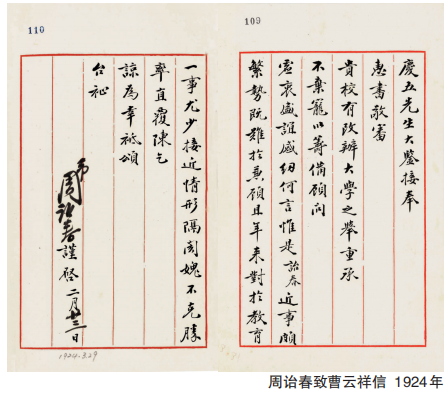 109
慶五先生大鑒接奉
惠書敬審
貴校有改辦大學之舉重承
不棄寵以籌備顧問
虛衷盛誼感紉何言惟是詒春近事頗
繁勢既難於兼顧且年來對於教育
110
一事尤少接近情形隔閡愧不克勝
率直覆陳乞
諒為幸祗頌
台祉
弟周詒春謹啓 二月廿三日
1924.3.29
周诒春致曹云祥信 1924年